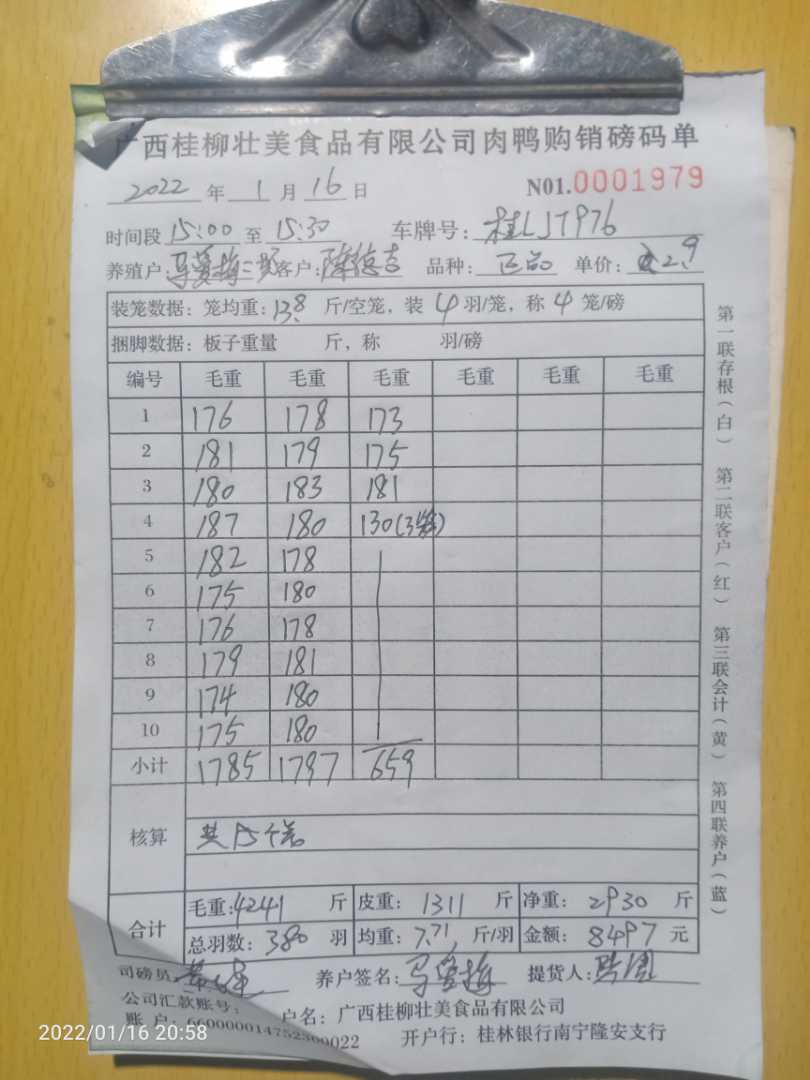 广西桂柳壮美食品有限公司肉鸭购销磅码单
2022 年 1 月 16 日 N01.0001979
时间段 15:00 至 15:30 车牌号: 桂LJT976
养殖户: 客户: 陈德吉 品种: 正品 单价: 2.9
装笼数据: 笼均重: 13.8 斤/空笼, 装 4 羽/笼, 称 4 笼/磅
捆脚数据: 板子重量 斤, 称 羽/磅
编号 毛重 毛重 毛重 毛重 毛重 毛重
1 176 178 173
2 181 179 175
3 180 183 181
4 187 180 130(3笼)
5 182 178
6 175 180
7 176 178
8 179 181
9 174 180
10 175 180
小计 1785 1797 659
核算 共 个笼
合计 毛重: 4241 斤 皮重: 1311 斤 净重: 2930 斤
总羽数: 380 羽 均重: 7.71 斤/羽 金额: 8497 元
司磅员 养户签名: 提货人:
公司汇款账号:
户名: 广西桂柳壮美食品有限公司
账 户: 660000014752300022 开户行: 桂林银行南宁隆安支行
第一联存根(白) 第二联客户(红) 第三联会计(黄) 第四联养户(蓝)
2022/01/16 20:58